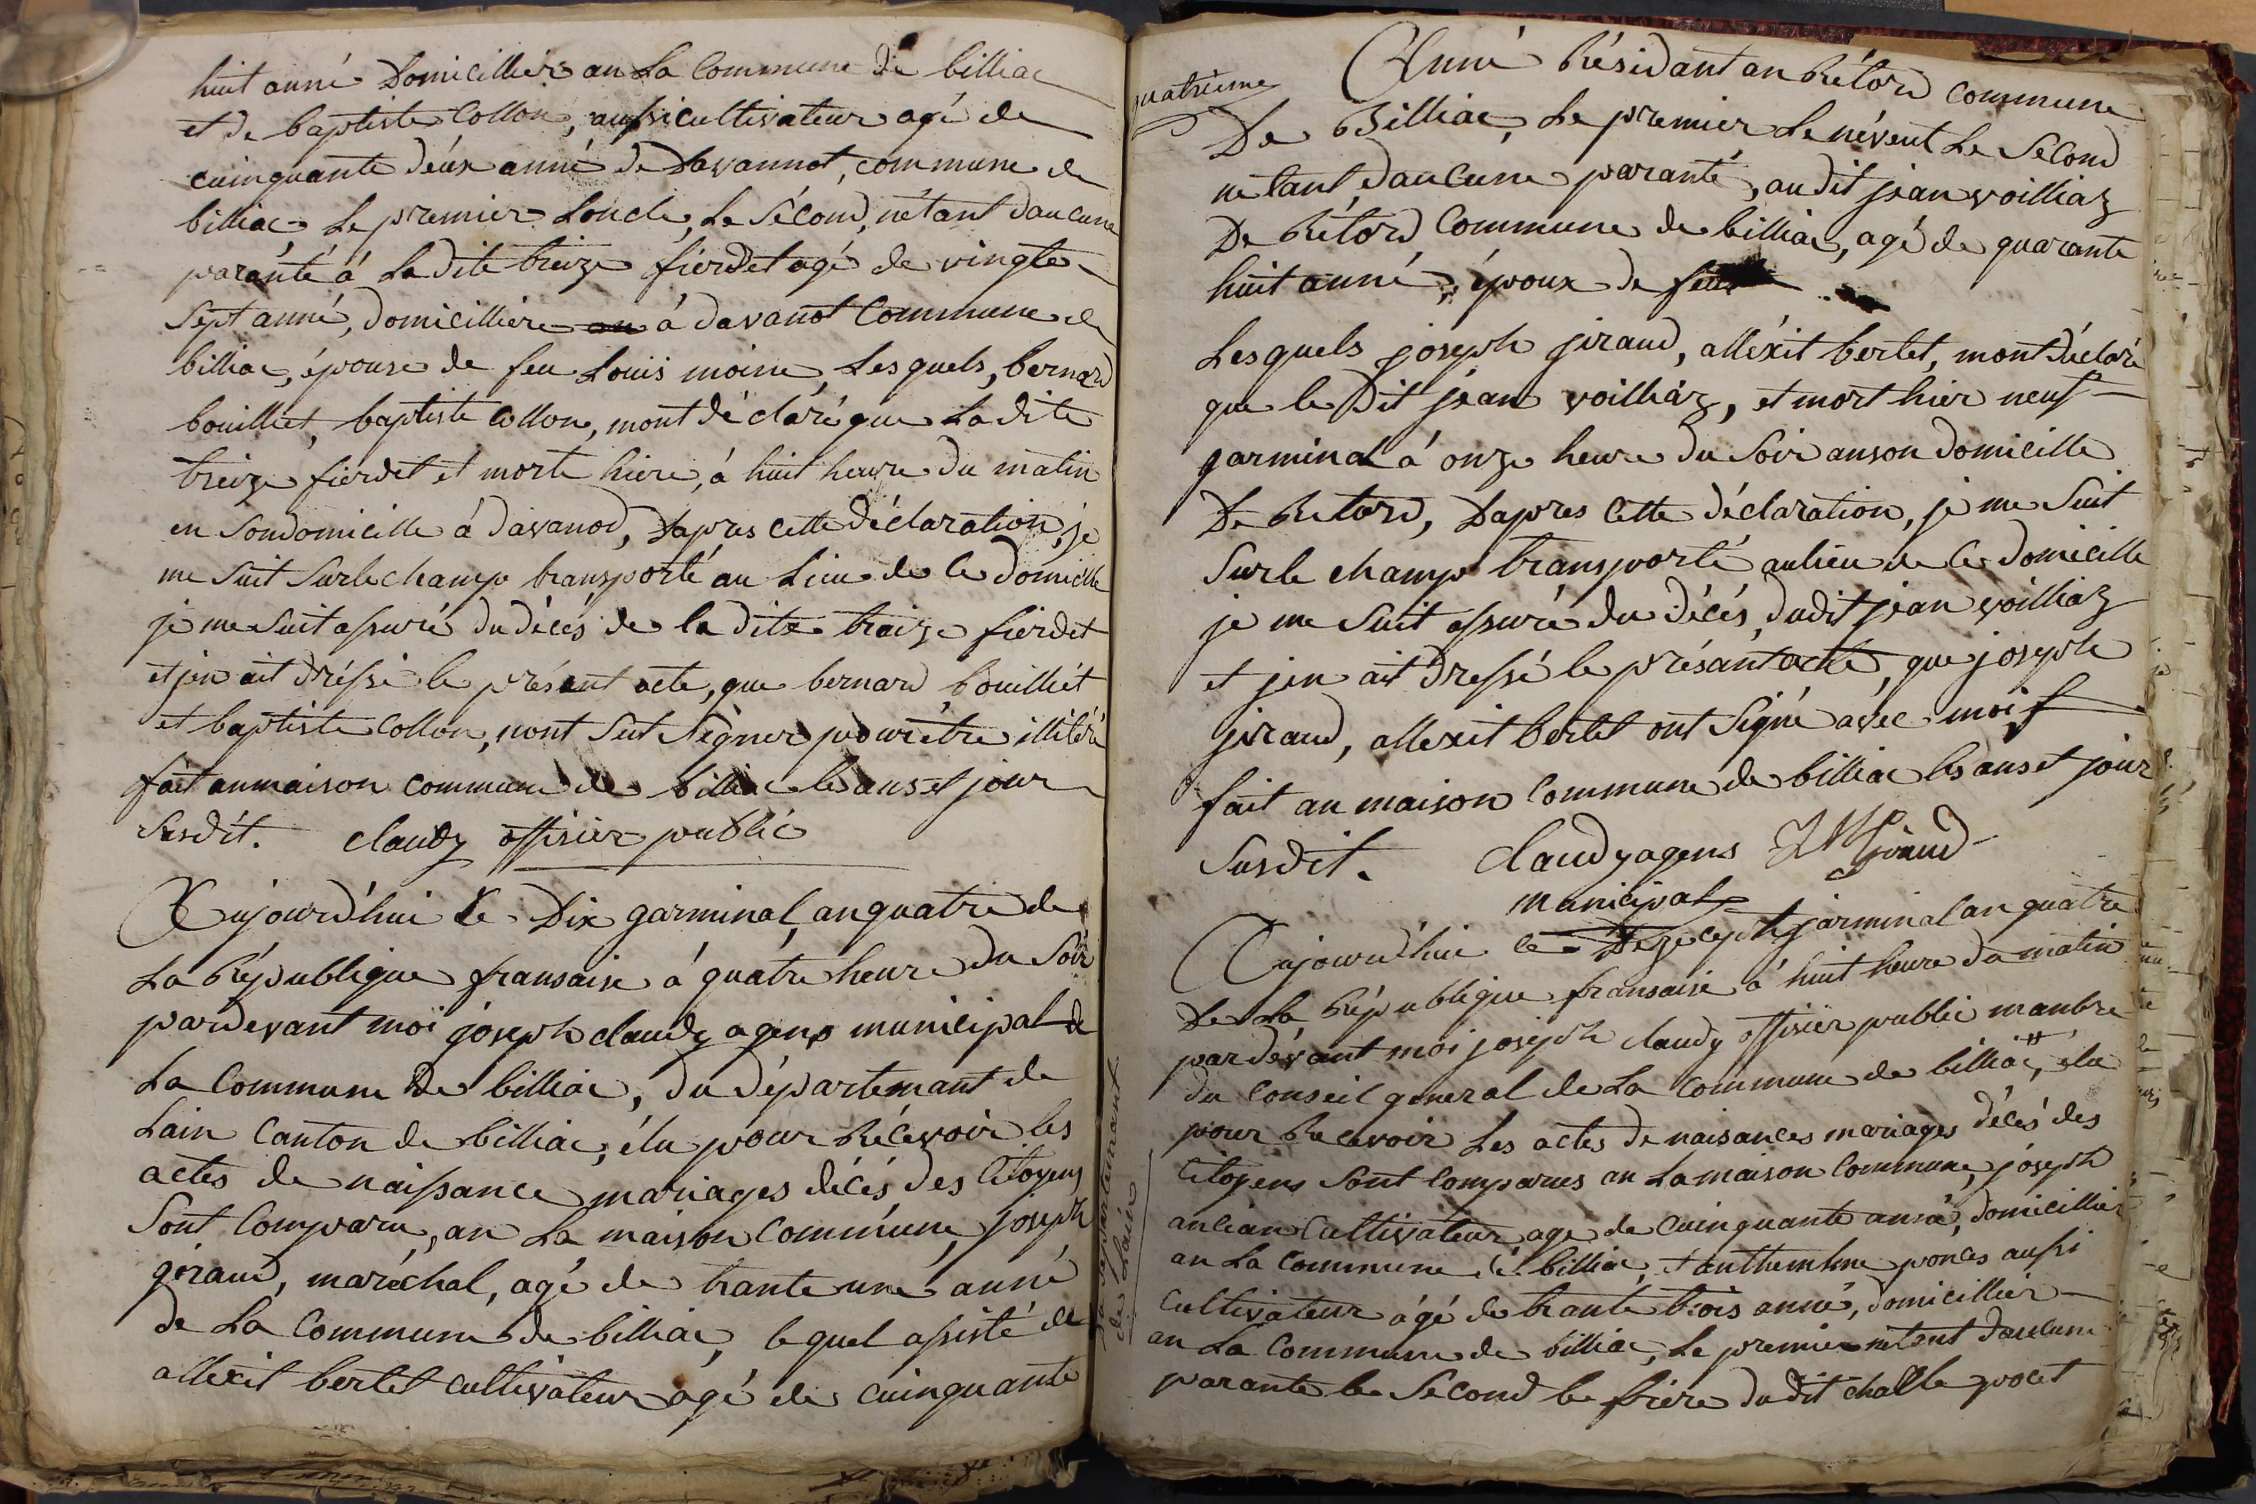 huit anné domicillier an la commune de billiac
et de baptiste Collon, aussi cultivateur agé de
cuinquante déux anné de davannot, commune de
billiac, le premier loncle, le sécond, nétant daucune
paranté á la dite treize fierdet agé de vingte
sept anné, domicilliere á davanot commune de
billiac, épouse de feu louis moine, lesquels, bernard
bouilliet, baptiste collon, mont déclaré que la dite
treize fierdet et morte hiere, à huit heure du matin
en sondomicille á davanod, dapres cette déclaration, je
me suit surlechamp transporté au lieu de ce domicille
je me suit assuré du décés de la dite traize fierdet
et jen ait dréssé le présent acte, que bernard bouilliét
et baptiste collon, nont sut signer pour étre illitéré
fait anmaison commune de billiac les ans et jour
susdit. claudy offisier public
Aujourd'hui le dix garminal, anquatre de
la république fransaise á quatre heure du soir
pardevant moi joseph claudy agens municipal de
la commune de billiac, du départemant de
lain canton de billiac, élu pour récevoir les
actes de naissance mariages décés des citoyens
sont comparu, an la maison commune, joseph
giraud, maréchal, agé de trante une anné
de la commune de billiac, lequel assisté de
allexit berlet cultivateur agé de cuinquante
quatrieme
Anné résidant an rétord commune
de Billiac, le premier le névent le second
netant daucune paranté, audit jean voilliaz
de rétord commune de billiac, agé de quarante
huit anné, époux de feue
lesquels joseph jiraud, alléxit berlet, mont déclaré
que le dit jean voilliaz, et mort hier neuf
garminal á onze heure du soir anson domicille
de Retord, dapres cette déclaration, je me suit
surle champ transporté aulieu de ce domicille
je me suit assuré du décés, dudit jean voilliaz
et jen ait dressé le présantacte, que joseph
jiraud, allexit berlet ont signé avec moi
fait an maison commune de billiac les ans et jour
susdit. claudy agens JM Giraud
municipal
Aujourd'hui le dizecept jarminal an quatre
de la république fransaise á huit heure du matin
pardévant moi joseph claudy offisier public manbre
du conseil general de la commune de billiac, # élu
pour recevoir les actes de naisances mariages décés des
citoyens sont comparus an la maison commune, joseph
ancian cultivateur age de cuinquante anné, domicillier
an la commune de billiac, et anthemhne ponces aussi
cultivateur ágé de trante trois anné, domicillier
an la commune de billiac, le premier nétant daucune
parante le second le friere du dit challe pocet
du départemant
de Lain